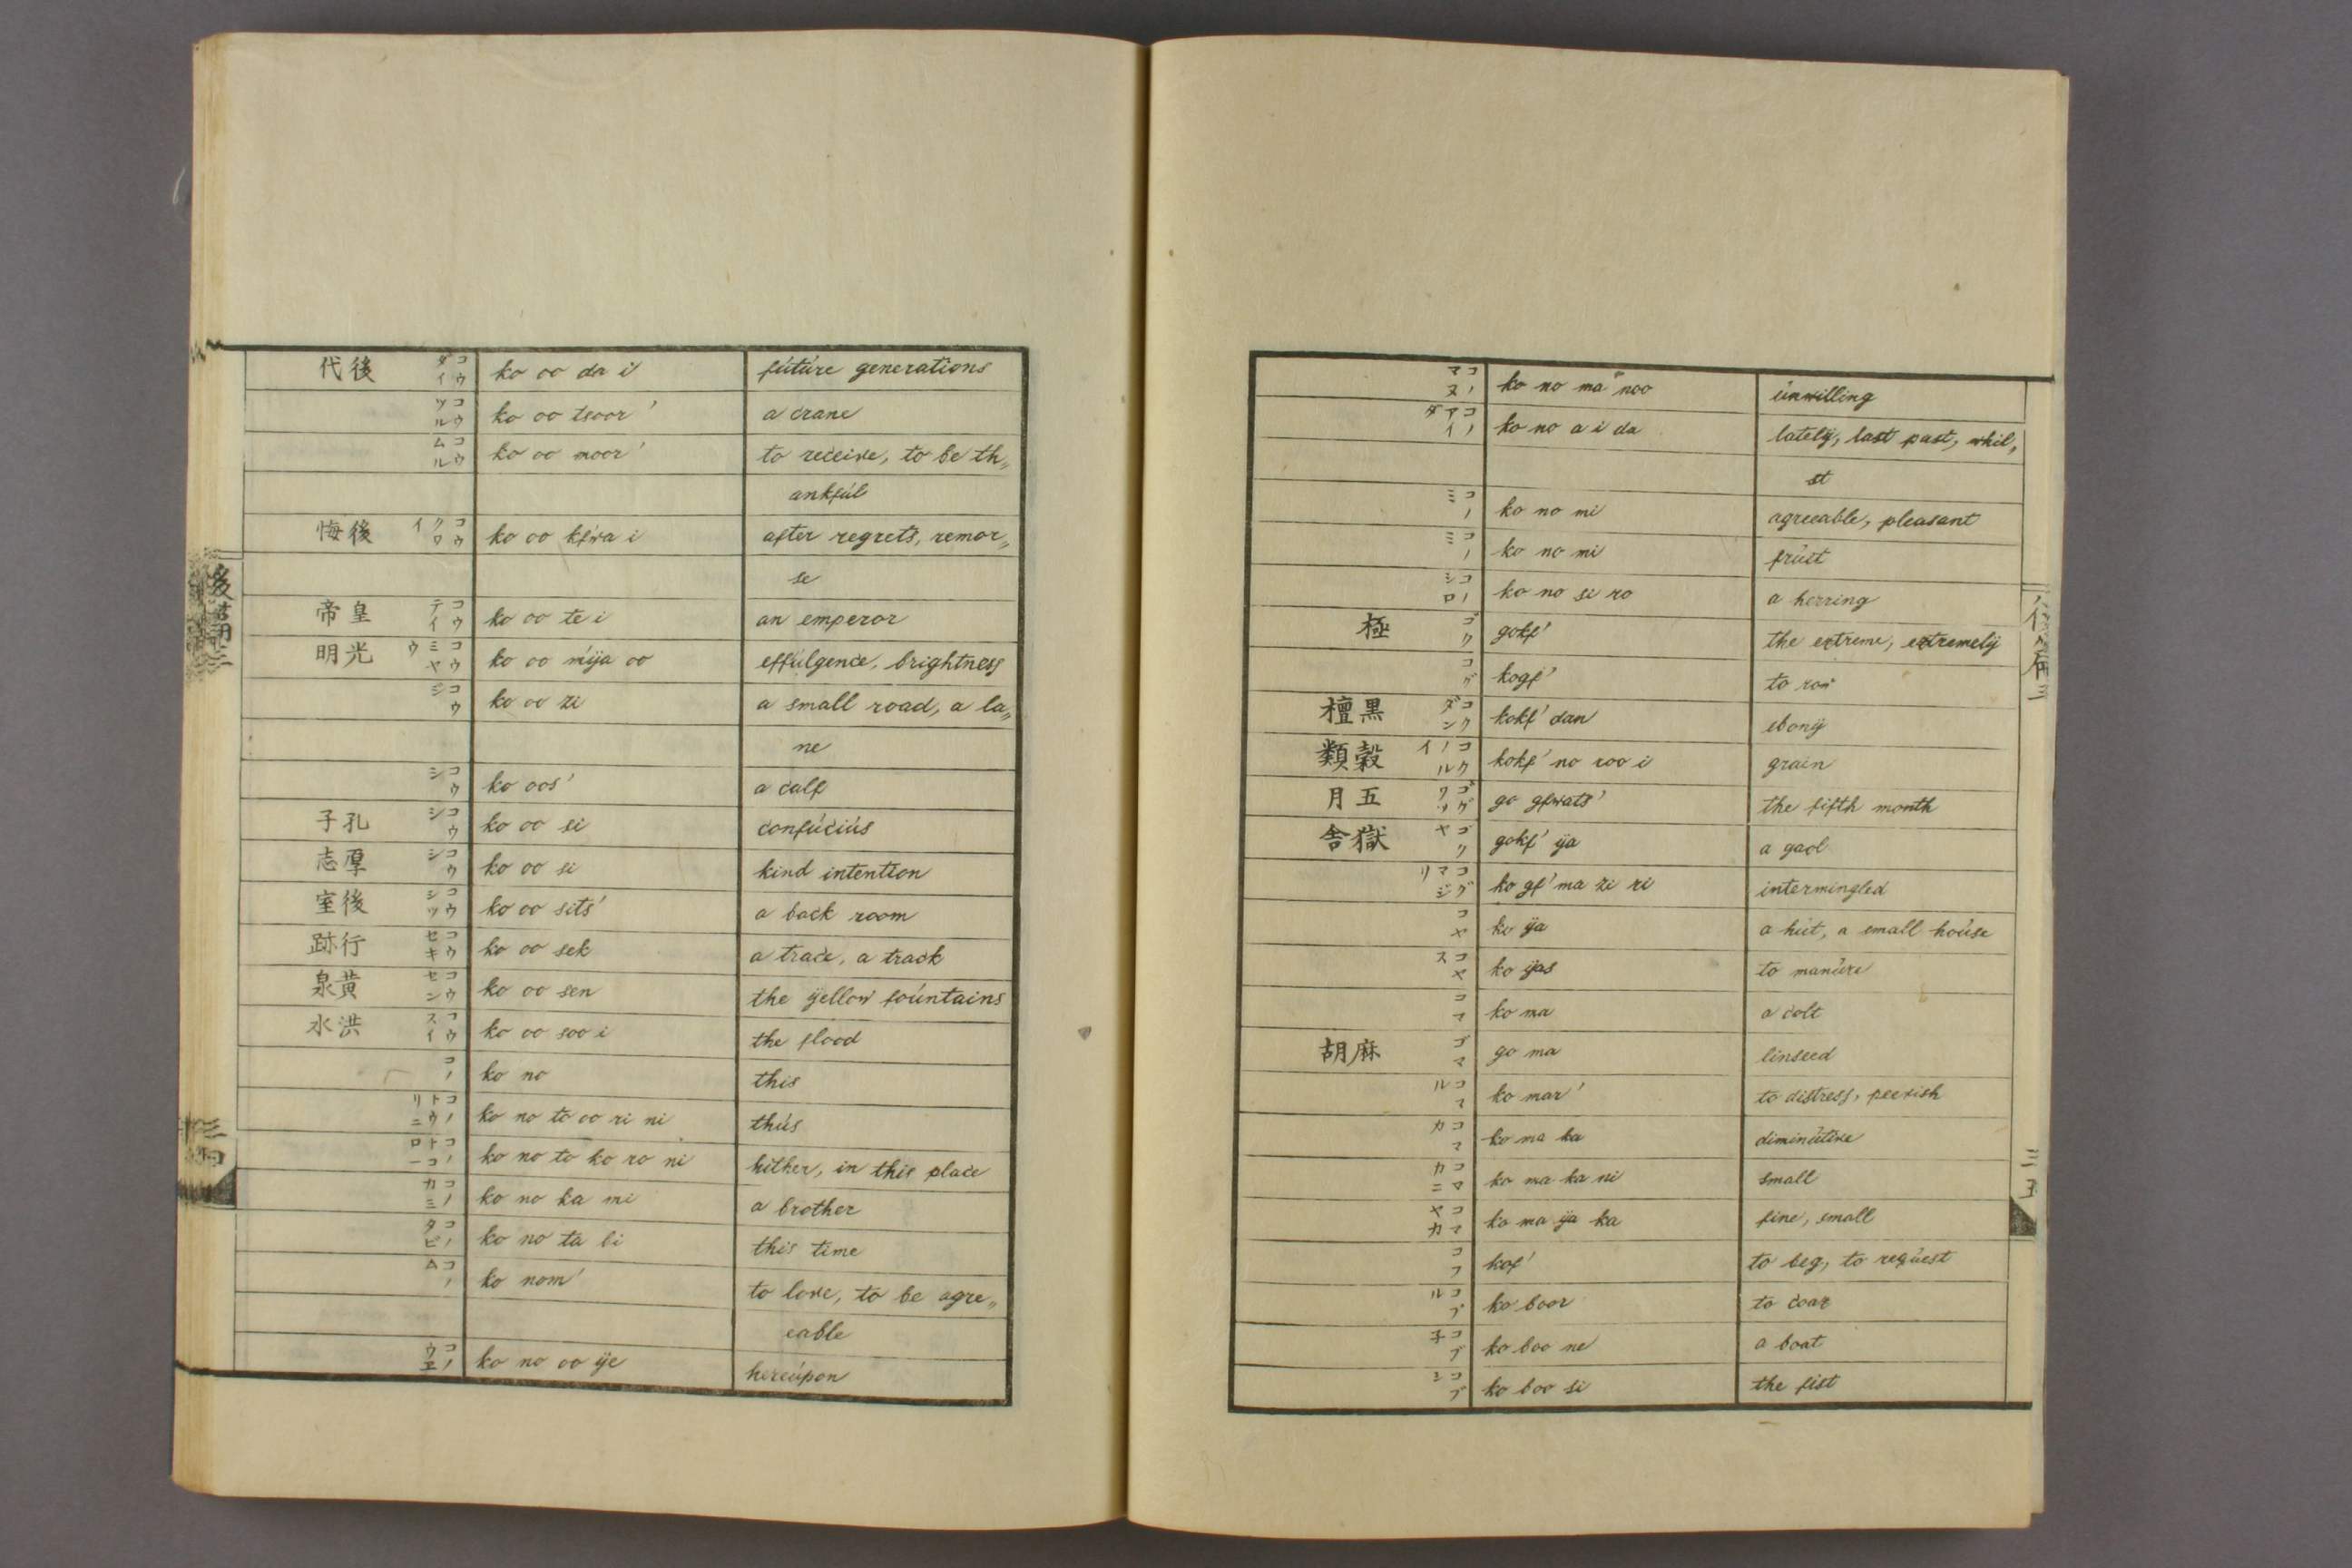 代後 ダイ コウ ko oo da i' fútúre generations
ツル コウ ko oo tsoor' a crane
ムル コウ ko oo moor' to receive, to be th„
ankfúl
悔後 イ クワ コウ ko oo kfwa i after regrets, remor„
se
帝皇 テイ コウ ko oo te i an emperor
明光 ウ ミヤ コウ ko oo mija oo effúlgence, brightness
ジ コウ ko oo zi a small road, a la„
ne
シ コウ ko oos' a calf
子孔 シ コウ ko oo si confúciús
志厚 シ コウ ko oo si kind intention
室後 シツ コウ ko oo sits' a back room
跡行 セキ コウ ko oo sek a trace, a track
泉黄 セン コウ ko oo sen the ÿellow foúntains
水洪 スイ コウ ko oo soo i the flood
コノ ko no this
リニ トウ コノ ko no to oo ri ni thús
ロニ トコ コノ ko no to ko ro ni hither, in this place
カミ コノ ko no ka mi a brother
タビ コノ ko no ta bi this time
ム コノ ko nom' to love, to be agre„
eable
ウヱ コノ ko no oo ÿe hereúpon
マヌ コノ ko no ma noo únwilling
ダ アイ コノ ko no a i da latelÿ, last past, whil„
st
ミ コノ ko no mi agreeable, pleasant
ミ コノ ko no mi frúit
シロ コノ ko no si ro a herring
極 ゴク gokf' the extreme, extremelÿ
コグ kogf' to row
檀黒 ダン コク kokf' dan ebonÿ
類穀 イ ノル コク kokf' no roo i grain
月五 ワツ ゴグ go gfwats' the fifth month
舎獄 ヤ ゴク gokf' ÿa a gaol
リ マジ コグ ko gf' ma zi ri intermingled
コヤ ko ÿa a hút, a small hoúse
ス コヤ ko ÿas to manúre
コマ ko ma a colt
胡麻 ゴマ go ma linseed
ル コマ ko mar' to distress, peevish
カ コマ ko ma ka diminútive
カニ コマ ko ma ka ni small
ヤカ コマ ko ma ÿa ka fine, small
コフ kof' to beg, to reqúest
ル コブ ko boor to coar
子 コブ ko boo ne a boat
シ コブ ko boo si the fist